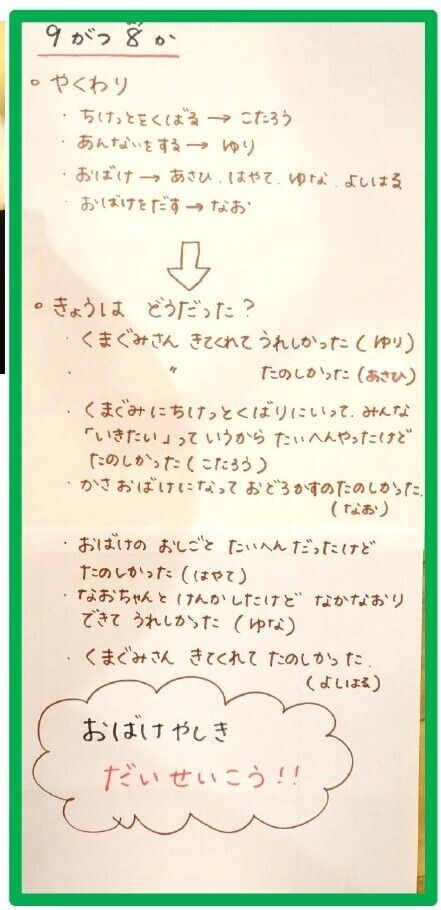 9がつ8か
○ やくわり
・ちけっとをくばる → こたろう
・あんないをする → ゆり
・おばけ → あさひ、はやて、ゆな、よしはる
・おばけをだす → なお
○ きょうは どうだった?
・くまぐみさん きてくれて うれしかった(ゆり)
・ 〃 たのしかった(あさひ)
・くまぐみにちけっとくばりにいって、みんな
「いきたい」って いうから たいへんやったけど
たのしかった(こたろう)
・かさおばけになって おどろかすのたのしかった.
(なお)
・おばけの おしごと たいへんだったけど
たのしかった(はやて)
・なおちゃんと けんかしたけど なかなおり
できて うれしかった (ゆな)
・くまぐみさん きてくれて たのしかった.
(よしはる)
おばけやしき
だいせいこう!!